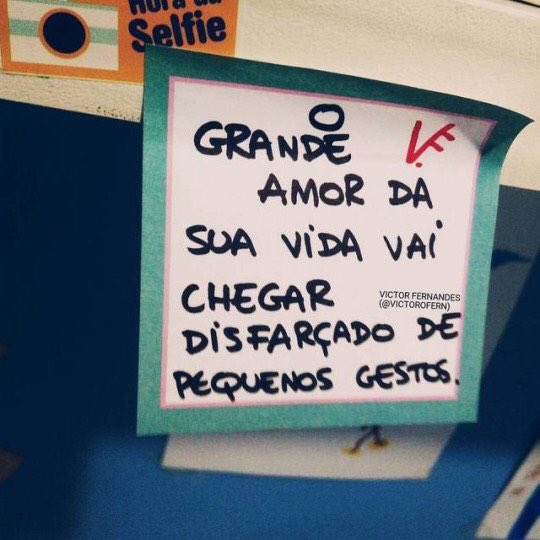 Hora da
Selfie
O
GRANDE
V.F.
AMOR DA
SUA VIDA VAI
CHEGAR
VICTOR FERNANDES
(@VICTOROFERN)
DISFARÇADO DE
PEQUENOS GESTOS.